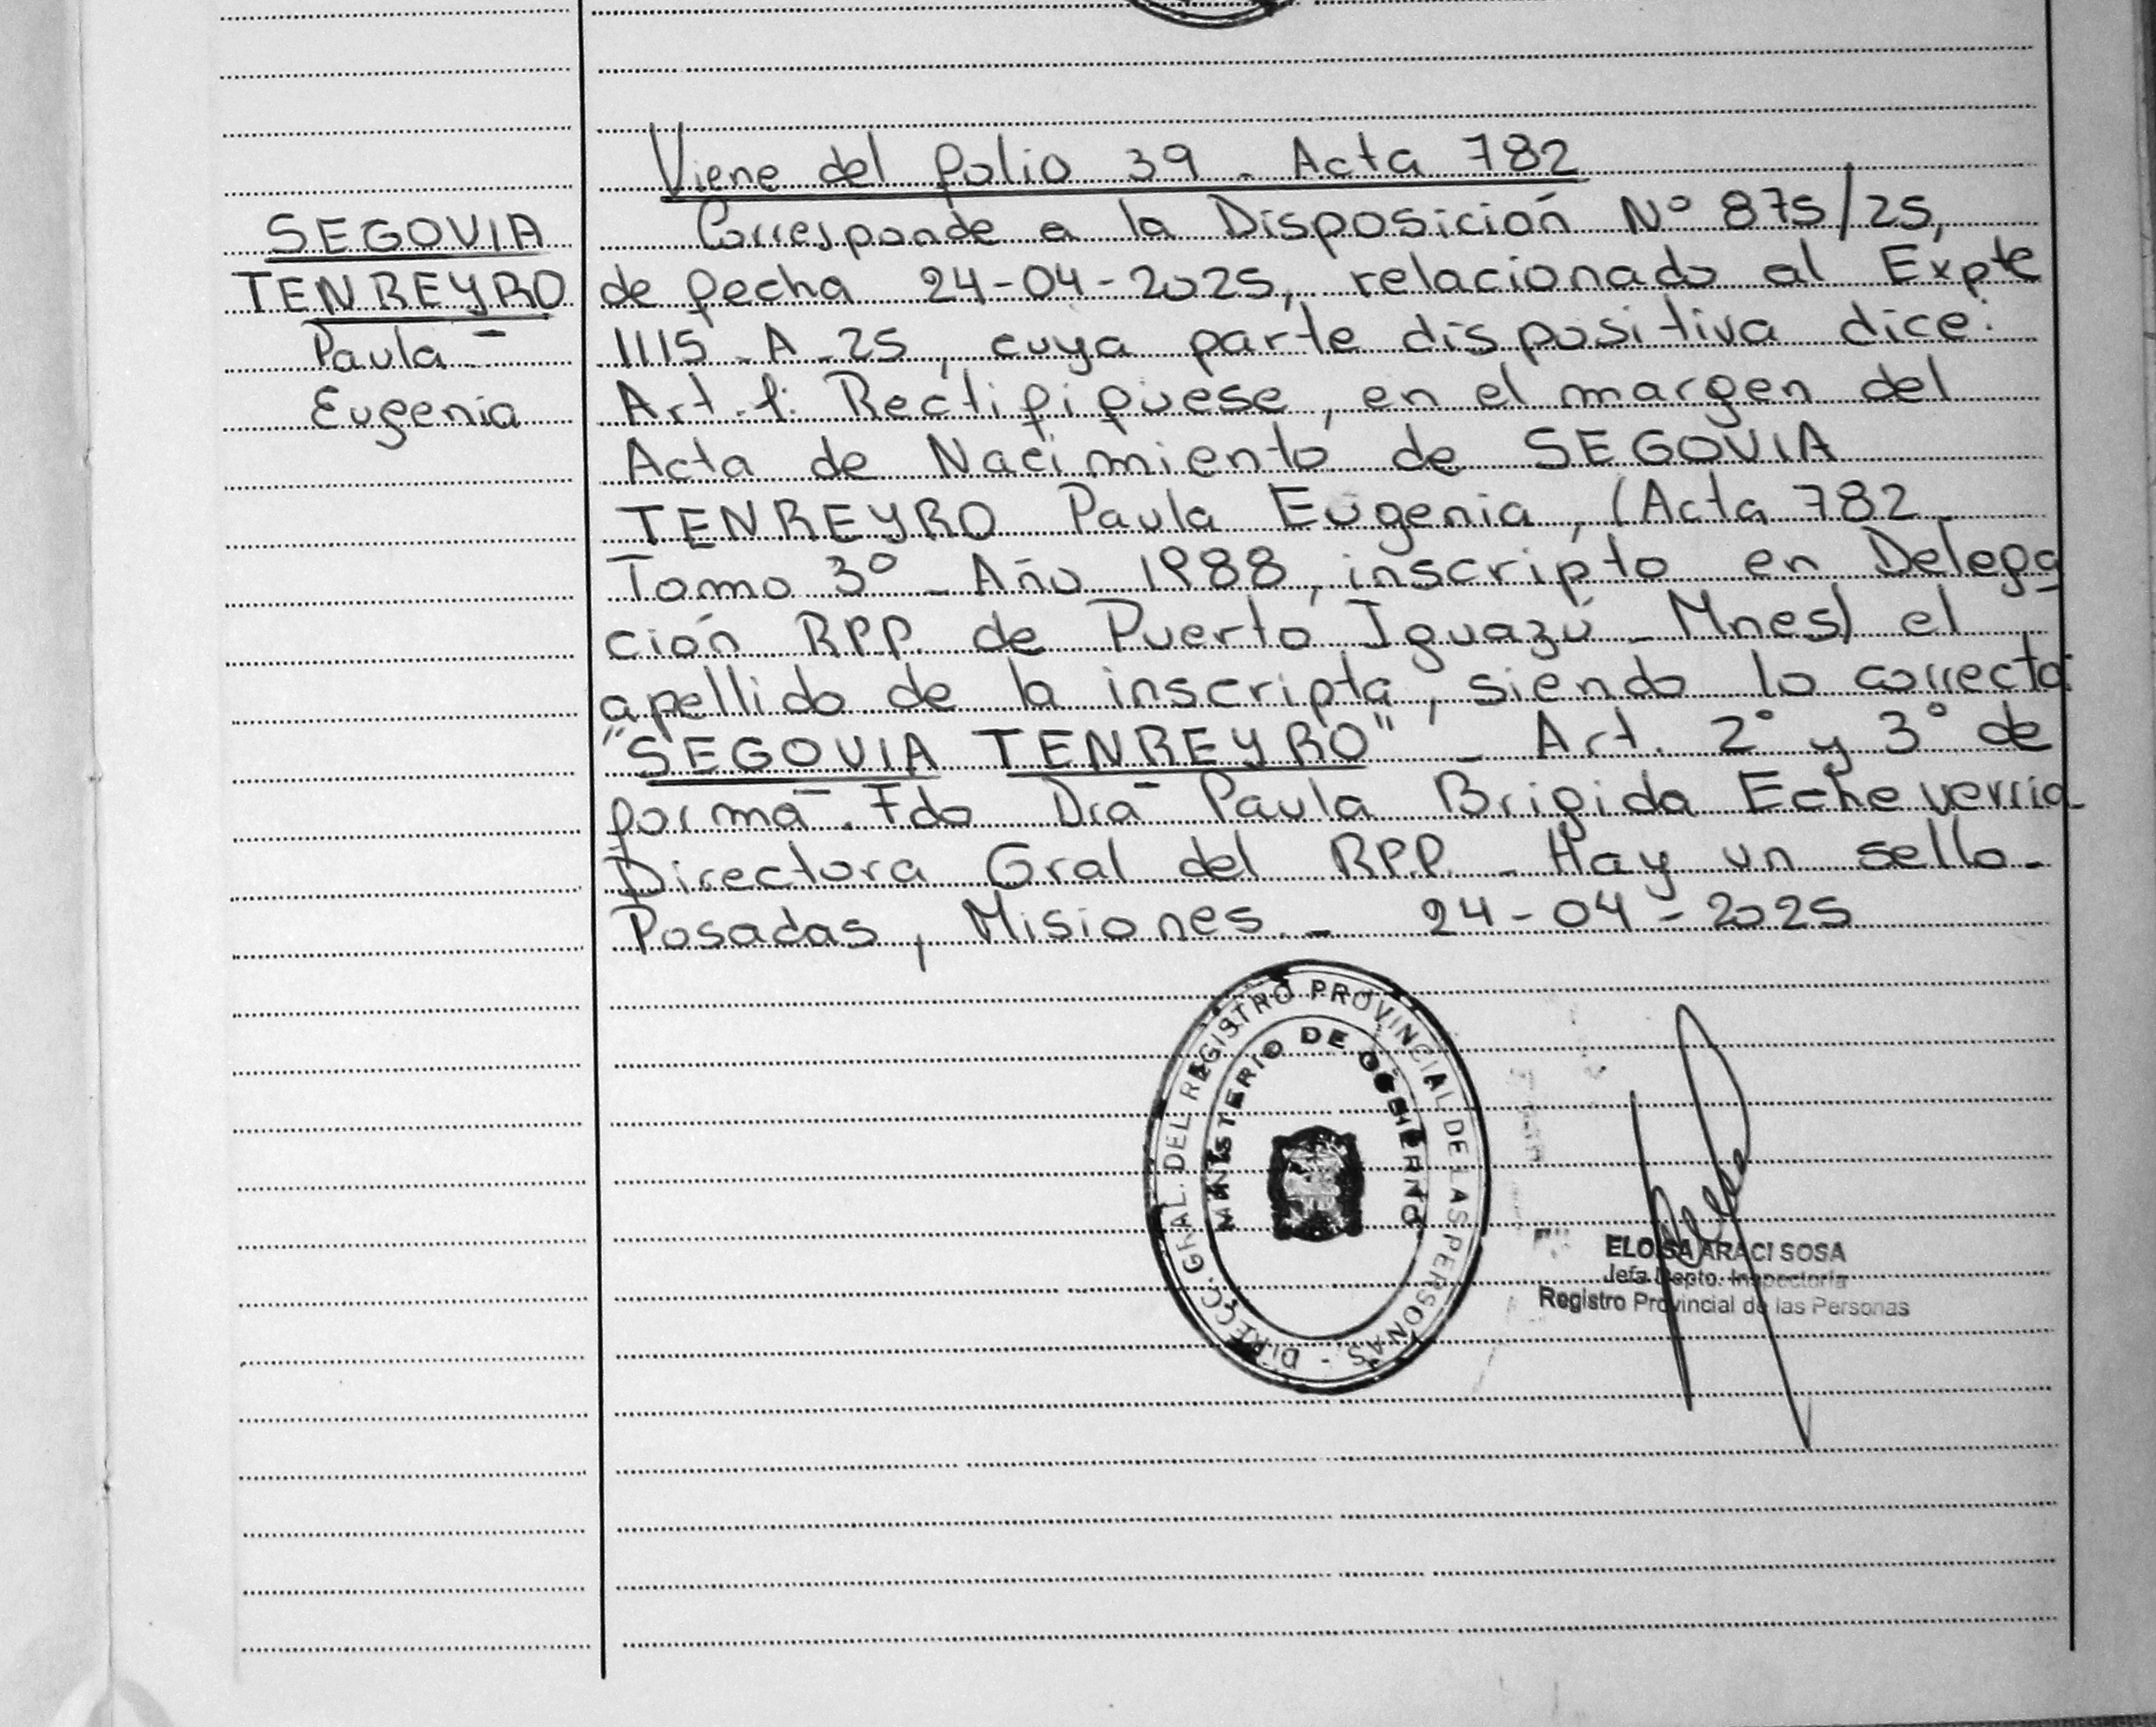 Viene del folio 39 - Acta 782
SEGOVIA
TENREYRO
Paula -
Eugenia
Corresponde a la Disposición Nº 875/25,
de fecha 24-04-2025, relacionado al Expte
1115-A-25, cuya parte dispositiva dice:
Art. 1: Rectifíquese, en el margen del
Acta de Nacimiento de SEGOVIA
TENREYRO Paula Eugenia, (Acta 782
Tomo 3º - Año 1988, inscripto en Delega
ción RPP. de Puerto Iguazú - Mnes) el
apellido de la inscripta, siendo lo correcto:
"SEGOVIA TENREYRO" - Art. 2º y 3º de
forma. Fdo Dra Paula Brigida Echeverria
Directora Gral del RPP. - Hay un sello -
Posadas, Misiones. - 24-04-2025
DIRECC. GRAL. DEL REGISTRO PROVINCIAL DE LAS PERSONAS -
MINISTERIO DE GOBIERNO
ELOISA ARACI SOSA
Jefa Depto. Inspectoría
Registro Provincial de las Personas